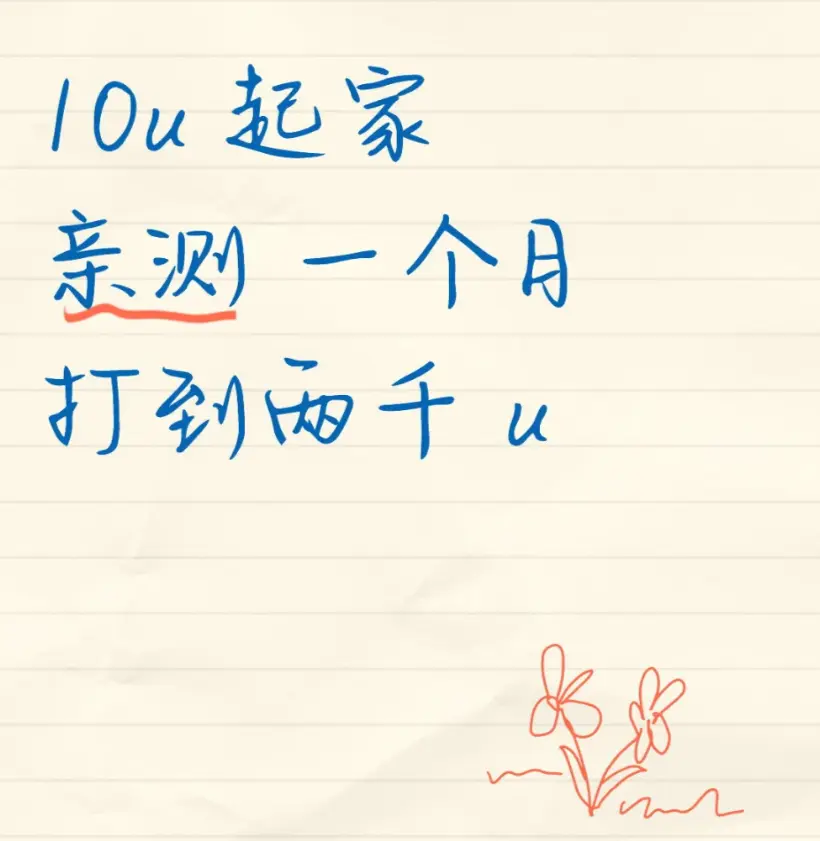 10u 起家
亲测 一个月
打到两千 u